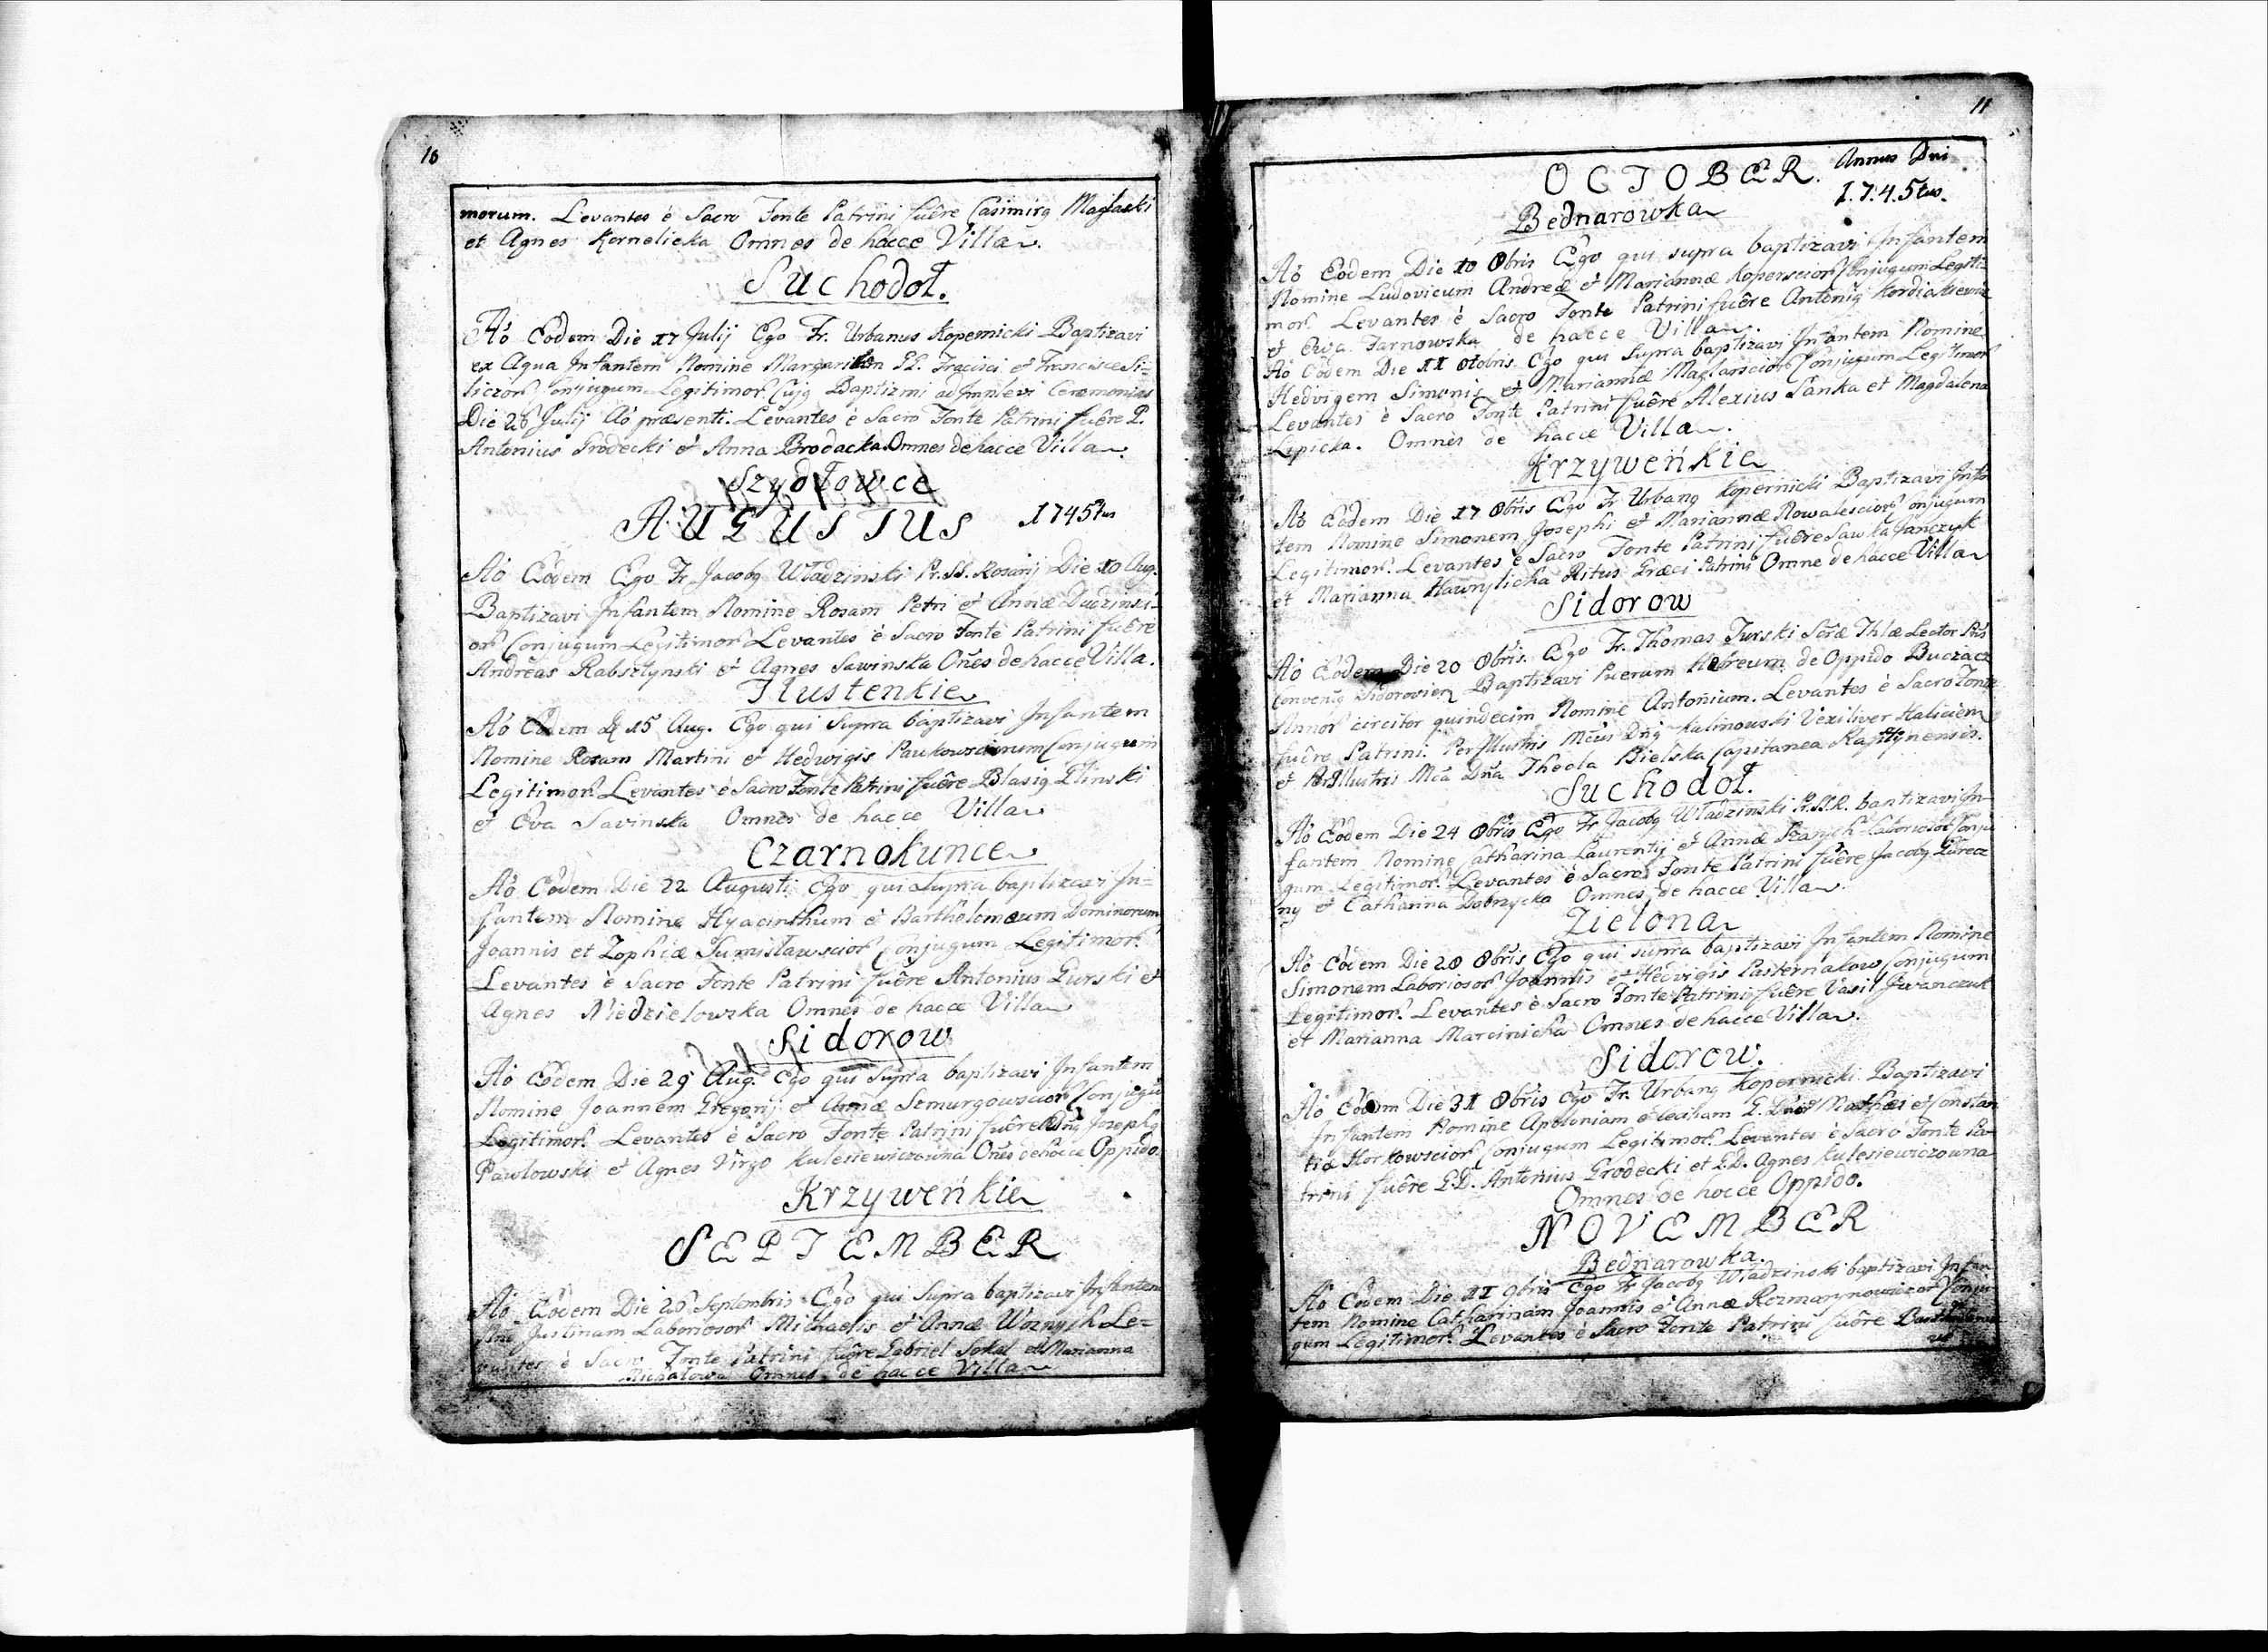 10
morum. Levantes è Sacro Fonte Patrini fuêre Casimirq Maglaski
et Agnes Kornelicka Omnes de hacce Villa.
Suchodoł.
Aô Eodem Die 17 Julij Ego Fr. Urbanus Kopernicki Baptizavi
ex Aqua Infantem Nomine Margaritam GG. Fracisci et Franciscæ Si-
liczor Conjugum Legitimor. Cujq Baptizmi adimplevi Ceremonias
Die 26 Julij Aô præsenti. Levantes è Sacro Fonte Patrini fuêre P.
Antonius Grodecki et Anna Brodacka Omnes de hacce Villa.
Szydłowce
AUGUSTUS 1745tus
Aô Eodem Ego Fr. Jacobq Władzinski Pr. SS. Rosarij Die 10 Aug.
Baptizavi Infantem Nomine Rosam Petri et Annæ Dudzinsci-
or Conjugum Legitimor Levantes è Sacro Fonte Patrini fuêre
Andreas Rabsztynski et Agnes Sawinska Oñes de hacce Villa.
Tłustenkie
Aô Eodem D 15 Aug. Ego qui Supra baptizavi Infantem
Nomine Rosam Martini et Hedwigis Conjugum
Legitimor. Levantes è Sacro Fonte Patrini fuêre Blasiq Glinski
et Eva Savinska Omnes de hacce Villa
Czarnokunce
Aô Eodem Die 22 Augusti Ego qui Supra baptizavi In-
fantem Nomine Hyacinthum è Bartholomæum Dominorum
Joannis et Zophiæ Sumisławscior Conjugum Legitimor.
Levantes è Sacro Fonte Patrini fuêre Antonius Gurski et
Agnes Niedzielowska Omnes de hacce Villa
Sidorow
Aô Eodem Die 29 Aug. Ego qui Supra baptizavi Infantem
Nomine Joannem Gregorij et Annæ Szmurgowscior Conjugū
Legitimor. Levantes è Sacro Fonte Patrini fuêre Dñq Josephq
Pawłowski et Agnes Virgo Kulesiewiczowna Oñes de hocce Oppido.
Krzyweńkie
SEPTEMBER
Aô Eodem Die 26 Septembris Ego qui Supra baptizavi Infantem
Justinam Laboriosor Michaelis et Annæ Woznych Le-
vantes è Sacro Fonte Patrini fuêre Gabriel Sokal et Marianna
Michałowa Omnes de hacce Villa
11
OCTOBER. Annus Dni
1.7.4.5tus.
Bednarowka
Aô Eodem Die 10 8bris Ego qui supra baptizavi Infantem
Nomine Ludovicum Andreæ et Mariannæ Koperscior Conjugum Legiti-
mor Levantes è Sacro Fonte Patrini fuêre Antoniq Kordiakiewicz
et Ewa Tarnowska de hacce Villa.
Aô Eodem Die 11 Otobris Ego qui Supra baptizavi Infantem Nomine
Hedvigem Simonis et Mariannæ Maglarscior Conjugum Legitimor
Levantes è Sacro Fonte Patrini fuêre Alexius Sanka et Magdalena
Lipicka. Omnes de hacce Villa.
Krzyweńkie
Aô Eodem Die 17 8bris Ego Fr. Urbanq Kopernicki Baptizavi Infan
tem Nomine Simonem Josephi et Mariannæ Kowalescior Conjugum
Legitimor. Levantes è Sacro Fonte Patrini fuêre Sawka Janczyk
et Marianna Hawrylicha Ritus Græci Patrini Omne de hacce Villa
Sidorow
Aô Eodem Die 20 8bris. Ego Fr. Thomas Turski Scræ Thlæ Lector Pñs
Convenq Sidorovien Baptizavi Puerum Hebreum de Oppido Buczacz
Annor circiter quindecim Nomine Antonium. Levantes è Sacro Fonte
fuêre Patrini. Perillustris Mcus Dnq Kalinowski Vexiliver Haliciens
et Perillustris Mca Dña Thecla Bielska Capitanea Rasztynensis.
Suchodoł.
Aô Eodem Die 24 8bris Ego Fr Jacobq Władzinski P. SS.R. baptizavi In-
fantem Nomine Catharina Laurentij et Annæ Laboriosor Conju
gum Legitimor. Levantes è Sacro Fonte Patrini fuêre Jacobq Gurecz
ny et Catharina Dobrzycka Omnes de hacce Villa.
Zielona
Aô Eodem Die 28 8bris Ego qui supra baptizavi Infantem Nomine
Simonem Laboriosor Joannis et Hedvigis Pasternakow Conjugum
Legitimor. Levantes è Sacro Fonte Patrini fuêre Vasil Iwanczuk
et Marianna Marcinicha Omnes de hacce Villa.
Sidorow.
Aô Eodem Die 31 8bris Ego Fr. Urbanq Kopernicki Baptizavi
Infantem Nomine Apoloniam G. Dnor Mathæi et Constan
tiæ Horkowscior Conjugum Legitimor. Levantes è Sacro Fonte Pa-
trini fuêre G.D. Antonius Grodecki et G.D. Agnes Kulesiewiczowna
Omnes de hocce Oppido.
NOVEMBER
Bednarowka.
Aô Eodem Die 11 9bris Ego Fr Jacobq Władzinski baptizavi Infan
tem Nomine Catharinam Joannis et Annæ Rozmarynowiczor Conju
gum Legitimor. Levantes è Sacro Fonte Patrini fuêre